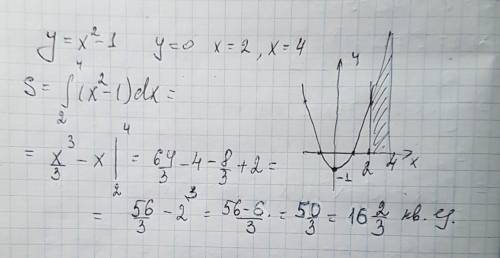 y = x² - 1   y = 0   x = 2, x = 4
S = ∫₂⁴ (x² - 1) dx =
= x³/3 - x |₂⁴ = 64/3 - 4 - 8/3 + 2 =
= 56/3 - 2 ³ = (56 - 6)/3 = 50/3 = 16 2/3 кв. ед.
y
-1 2 4 x